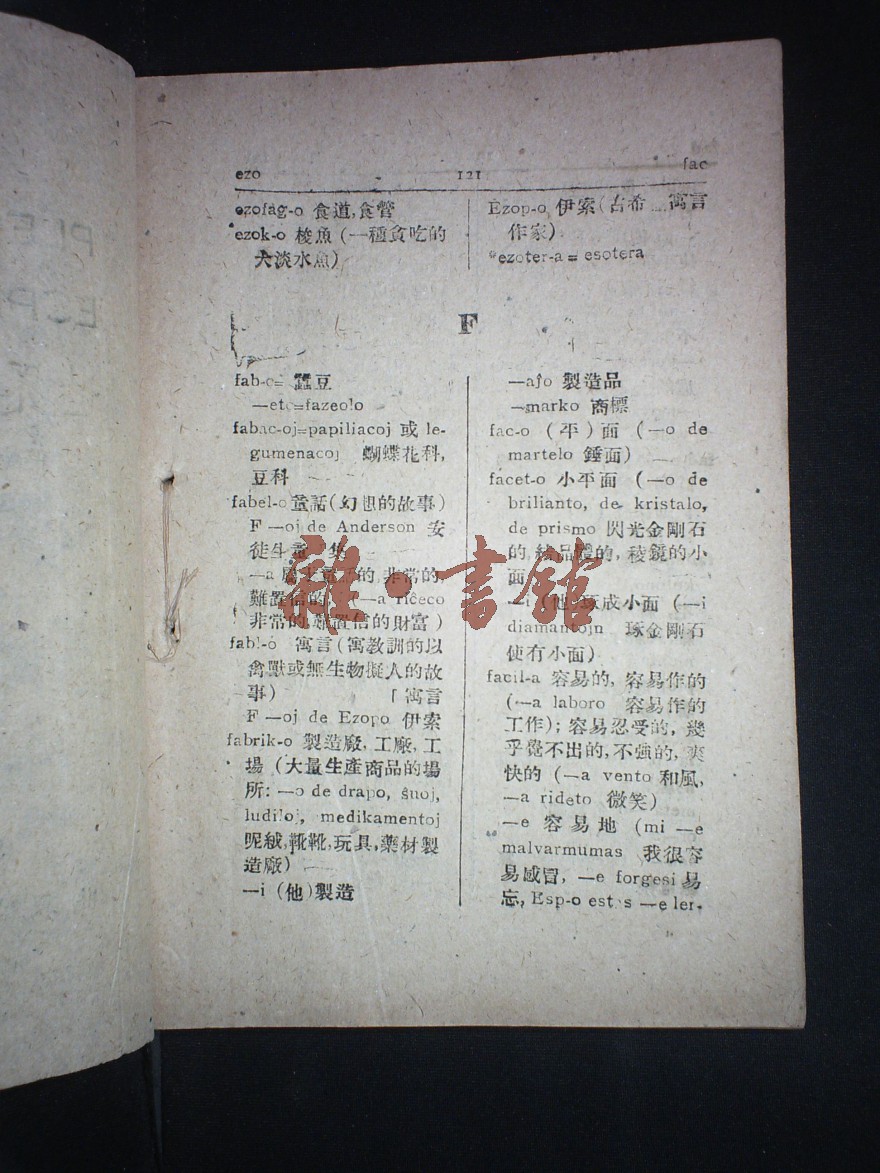 ezo 121 fac
ezofag-o 食道,食管
ezok-o 梭魚 (一種貪吃的
大淡水魚)
Ezop-o 伊索(古希 寓言
作家)
*ezoter-a = esotera
F
fab-o= 蠶豆
—eto=fazeolo
fabac-oj=papiliacoj 或 le-
gumenacoj 蝴蝶花科,
豆科
fabel-o 童話(幻想的故事)
F —oj de Anderson 安
徒生童 集
—a 童話的,非常的
難置信的, —a riĉeco
非常的,難置信的財富)
fabl-o 寓言(寓教訓的以
禽獸或無生物擬人的故
事) 「寓言
F —oj de Ezopo 伊索
fabrik-o 製造廠, 工廠, 工
場 (大量生產商品的場
所: —o de drapo, ŝuoj,
ludiloj, medikamentoj
呢絨,靴靴,玩具,藥材製
造廠)
—i (他)製造
—aĵo 製造品
—marko 商標
fac-o (平)面 (—o de
martelo 錘面)
facet-o 小平面 (—o de
brilianto, de kristalo,
de prismo 閃光金剛石
的, 品體的, 稜鏡的小
面
—i (他)琢成小面 (—i
diamantojn 琢金剛石
使有小面)
facil-a 容易的, 容易作的
(—a laboro 容易作的
工作); 容易忍受的, 幾
乎覺不出的,不強的, 爽
快的 (—a vento 和風,
—a rideto 微笑)
—e 容易地 (mi —e
malvarmumas 我很容
易感冒, —e forgesi 易
忘, Esp-o est s —e ler-
雜·書館